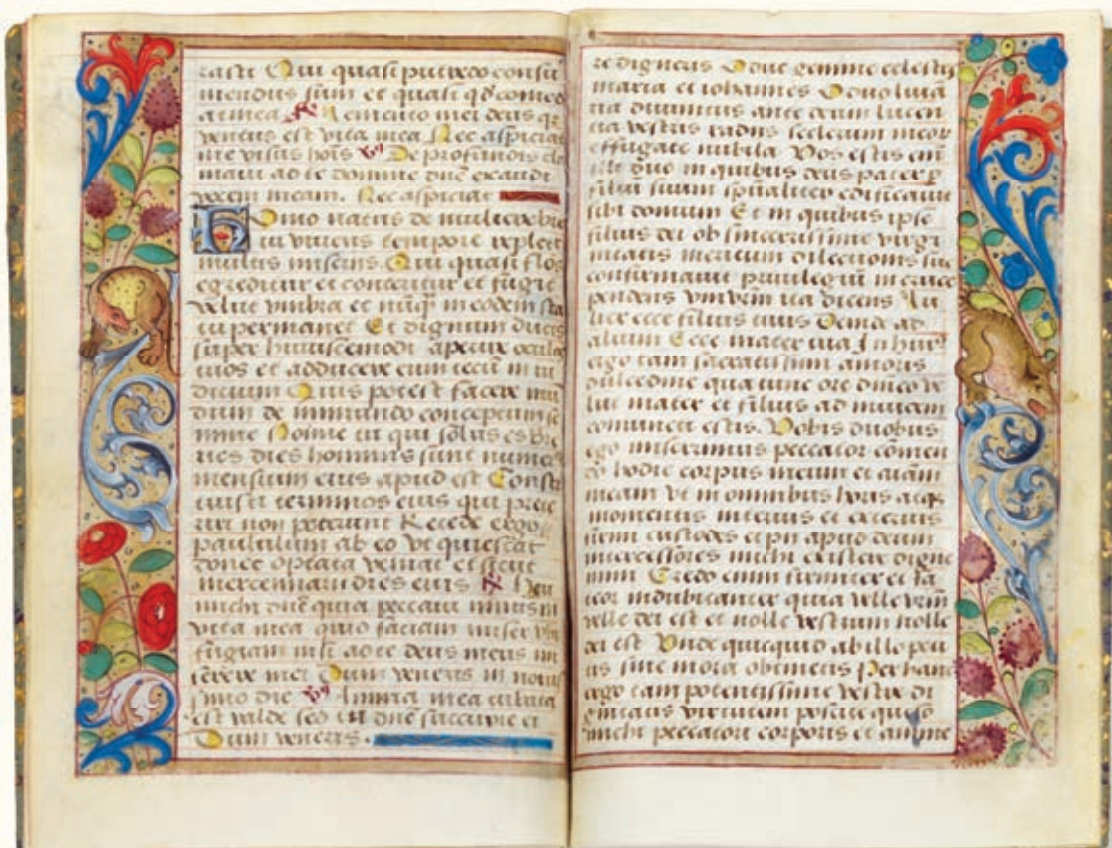 rasti Qui quasi putredo consu
mendus sum et quasi qd comed
a tinea Memento mei deus qr
ventus est vita mea Nec aspiciat
me visus hois De profundis cla
mavi ad te domine dne exaudi
vocem meam. Nec aspiciat
Homo natus de muliere bre
vi vivens tempore repletr
multis miseriis. Qui quasi flos
egreditur et conteritur et fugit
velut umbra et nunq in eodem sta
tu permanet Et dignum ducis
super huiuscemodi aperire oculos
tuos et adducere eum tecu in iu
dicium Quis potest facere mu
dum de immundo conceptum se
mine Nonne tu qui solus es Bre
ves dies hominis sunt numer
mensium eius apud te est Consti
tuisti terminos eius qui prete
riri non poterunt Recede ergo
paululum ab eo ut quiescat
donec optata veniat et sicut
mercennarii dies eius Heu
michi dne quia peccavi nimis in
vita mea quid faciam miser ubi
fugiam nisi ad te deus meus mi
serere mei Dum veneris in novis
simo die Anima mea turbata
est valde sed tu dne succurre ei
Dum veneris.
re digneris O due gemme celestes
maria et iohannes O duo lumina
ria divinitus ante deum lucen
tia vestris radiis scelerum meor
effugate nubila Vos estis eni
illi duo in quibus deus pater p
filium suum spualiter edificavit
sibi domum Et in quibus ipse
filius dei ob sincerissime virgi
nitatis meritum dilectionis sue
confirmavit privilegiu in cruce
pendens uni vrm ita dicens Mu
lier ecce filius tuus Deinde ad
alium Ecce mater tua In huius
ergo tam sacratissimi amoris
dulcedine qua tunc ore dnico ve
lut mater et filius ad invicem
coniuncti estis. Vobis duobus
ego miserimus peccator comen
do hodie corpus meum et aiam
meam ut in omnibus horis atqz
momentis interius et exterius
firmi custodes et pii apud deum
intercessores michi existere digne
mini Credo enim firmiter et fa
teor indubitanter quia velle vrm
velle dei est et nolle vestrum nolle
dei est Unde quicquid ab illo peti
tis sine mora obtinetis Per hanc
ergo tam potentissime vestre di
gnitatis virtutem poscite queso
michi peccatori corporis et anime